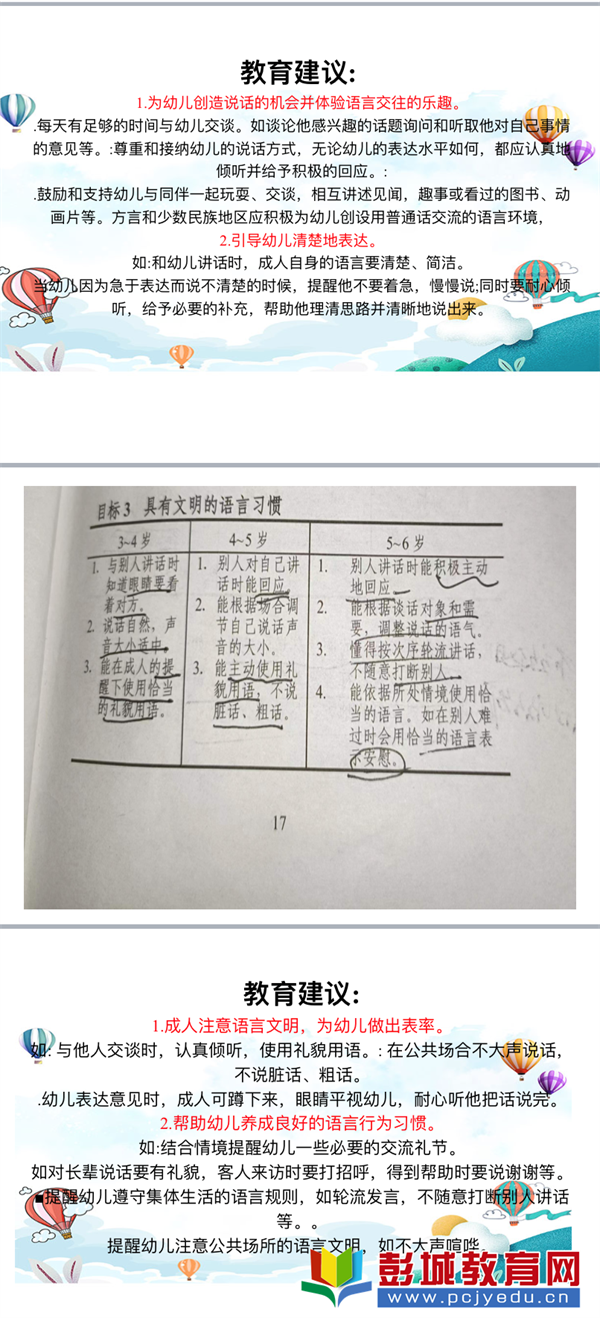 教育建议:
1.为幼儿创造说话的机会并体验语言交往的乐趣。
.每天有足够的时间与幼儿交谈。如谈论他感兴趣的话题询问和听取他对自己事情
的意见等。:尊重和接纳幼儿的说话方式，无论幼儿的表达水平如何，都应认真地
倾听并给予积极的回应。:
.鼓励和支持幼儿与同伴一起玩耍、交谈，相互讲述见闻，趣事或看过的图书、动
画片等。方言和少数民族地区应积极为幼儿创设用普通话交流的语言环境，
2.引导幼儿清楚地表达。
如:和幼儿讲话时，成人自身的语言要清楚、简洁。
当幼儿因为急于表达而说不清楚的时候，提醒他不要着急，慢慢说;同时要耐心倾
听，给予必要的补充，帮助他理清思路并清晰地说出来。
目标3 具有文明的语言习惯
3~4岁
1. 与别人讲话时
知道眼睛要看
着对方。
2. 说话自然，声
音大小适中。
3. 能在成人的提
醒下使用恰当
的礼貌用语。
4~5岁
1. 别人对自己讲
话时能回应。
2. 能根据场合调
节自己说话声
音的大小。
3. 能主动使用礼
貌用语，不说
脏话、粗话。
5~6岁
1. 别人讲话时能积极主动
地回应。
2. 能根据谈话对象和需
要，调整说话的语气。
3. 懂得按次序轮流讲话，
不随意打断别人。
4. 能依据所处情境使用恰
当的语言。如在别人难
过时会用恰当的语言表
示安慰。
17
教育建议:
1.成人注意语言文明，为幼儿做出表率。
如: 与他人交谈时，认真倾听，使用礼貌用语。: 在公共场合不大声说话，
不说脏话、粗话。
.幼儿表达意见时，成人可蹲下来，眼睛平视幼儿，耐心听他把话说完。
2.帮助幼儿养成良好的语言行为习惯。
如:结合情境提醒幼儿一些必要的交流礼节。
如对长辈说话要有礼貌，客人来访时要打招呼，得到帮助时要说谢谢等。
■提醒幼儿遵守集体生活的语言规则，如轮流发言，不随意打断别人讲话
等。。
提醒幼儿注意公共场所的语言文明，如不大声喧哗。
彭城教育网
www.pcjyedu.cn